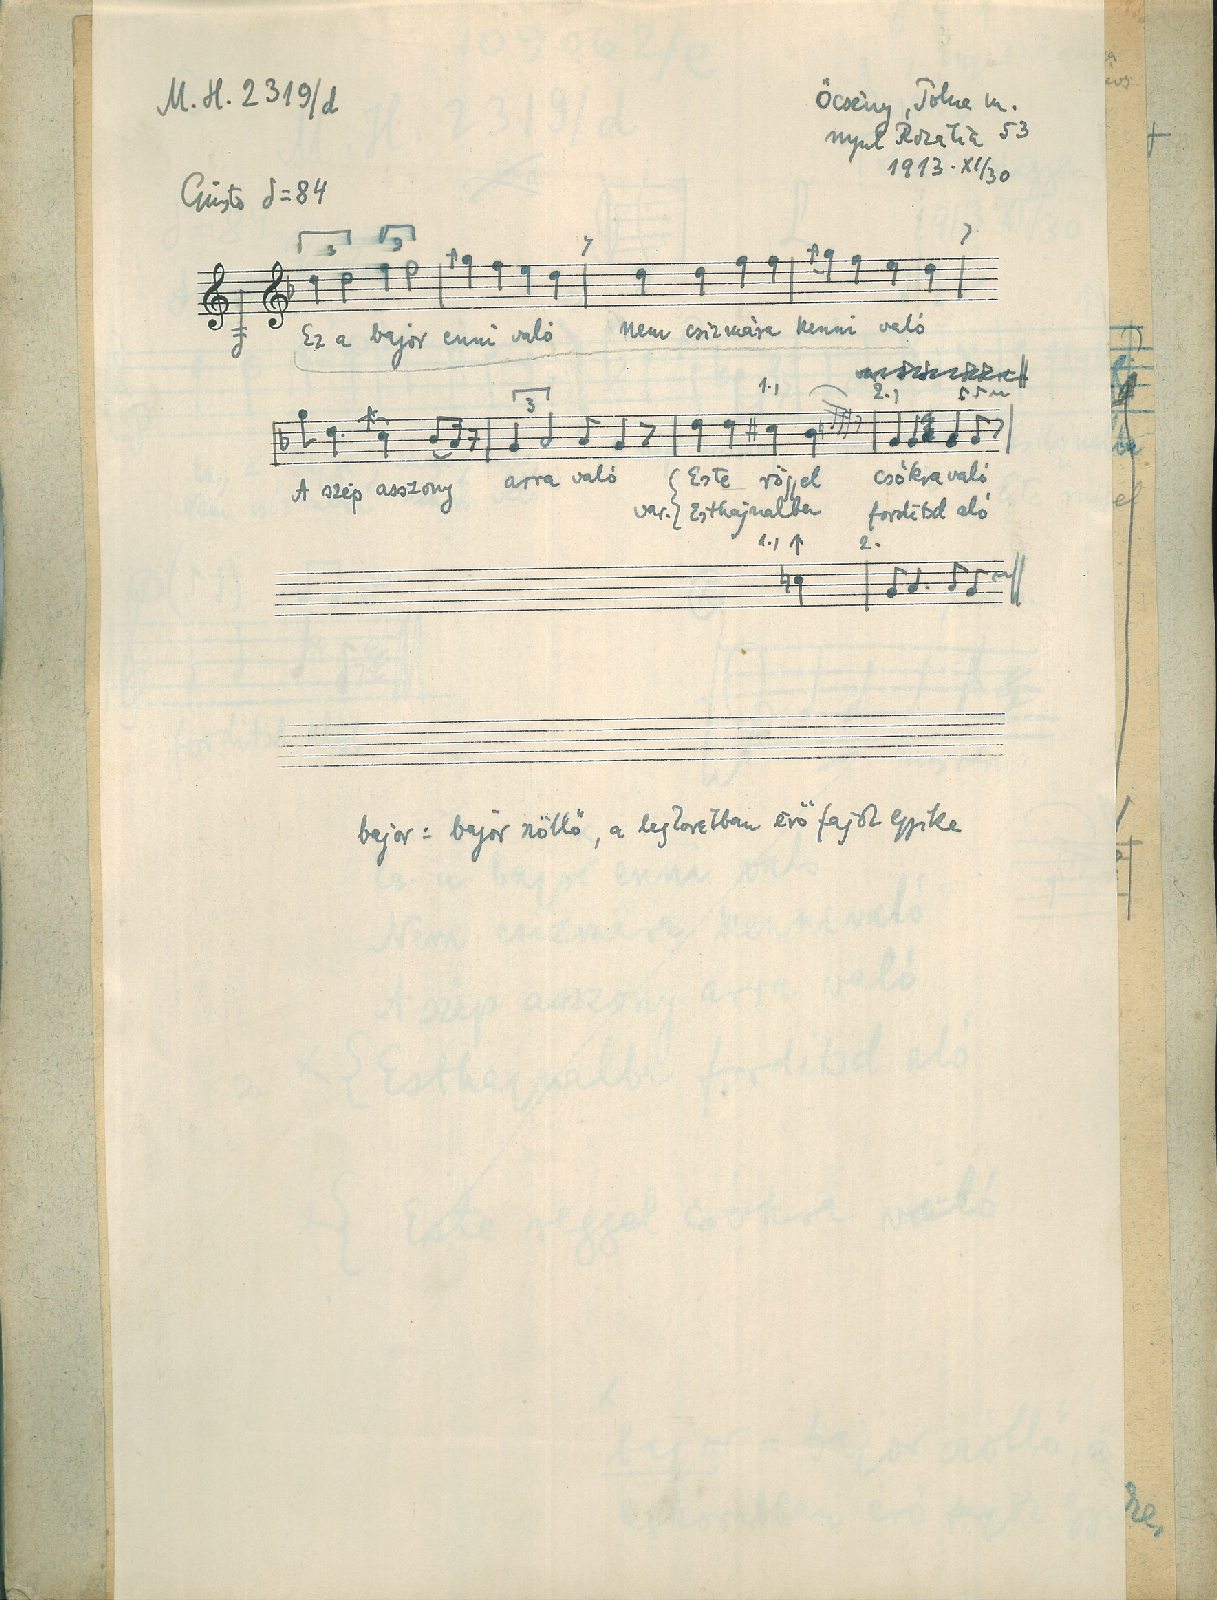 M. H. 2319/d
Öcsény, Tolna m.
Nyul Rozália 53
1913. XI/30
Giusto = 84
3 3
Ez a bajor enni való nem csizmára kenni való
3 1., 2.,
A szép asszony arra való { Este röggel csókra való
var. { Esthajnalben forditsd aló
1., 2.
bajor = bajor szöllő, a legkorábban érő fajok egyike